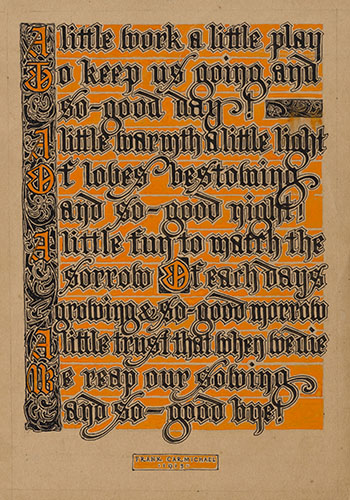 A little work a little play
To keep us going, and
so-good day!
A little warmth a little light
Of loves bestowing
and so-good night!
A little fun to match the
sorrow Of each days
growing & so-good morrow
A little trust that when we die
We reap our sowing
and so-good bye!
FRANK CARMICHAEL
1915